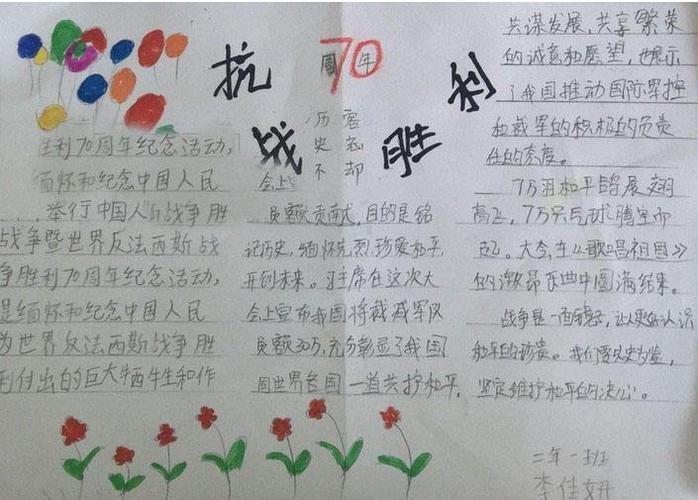 抗战胜利
70周年
历史不容忘却
胜利70周年纪念活动,
缅怀和纪念中国人民
举行中国人民战争胜
战争暨世界反法西斯战
争胜利70周年纪念活动,
是缅怀和纪念中国人民
为世界反法西斯战争胜
利付出的巨大牺牲和作
会上
员额贡献,目的是铭
记历史,缅怀先烈,珍爱和平,
开创未来。习主席在这次大
会上宣布我国将裁减军队
员额30万,充分彰显了我国
同世界各国一道共护和平,
共谋发展,共享繁荣
的诚意和愿望,也展示
了我国推动国际军控
和裁军的积极的负责
任的态度。
7万羽和平鸽展翅
高飞,7万只气球腾空而
起。大会在《歌唱祖国》
的激昂乐曲中圆满结果。
战争是一面镜子,让人更好认识
和平的珍贵。我们要以史为鉴,
坚定维护和平的决心。
二年一班
李佳妍